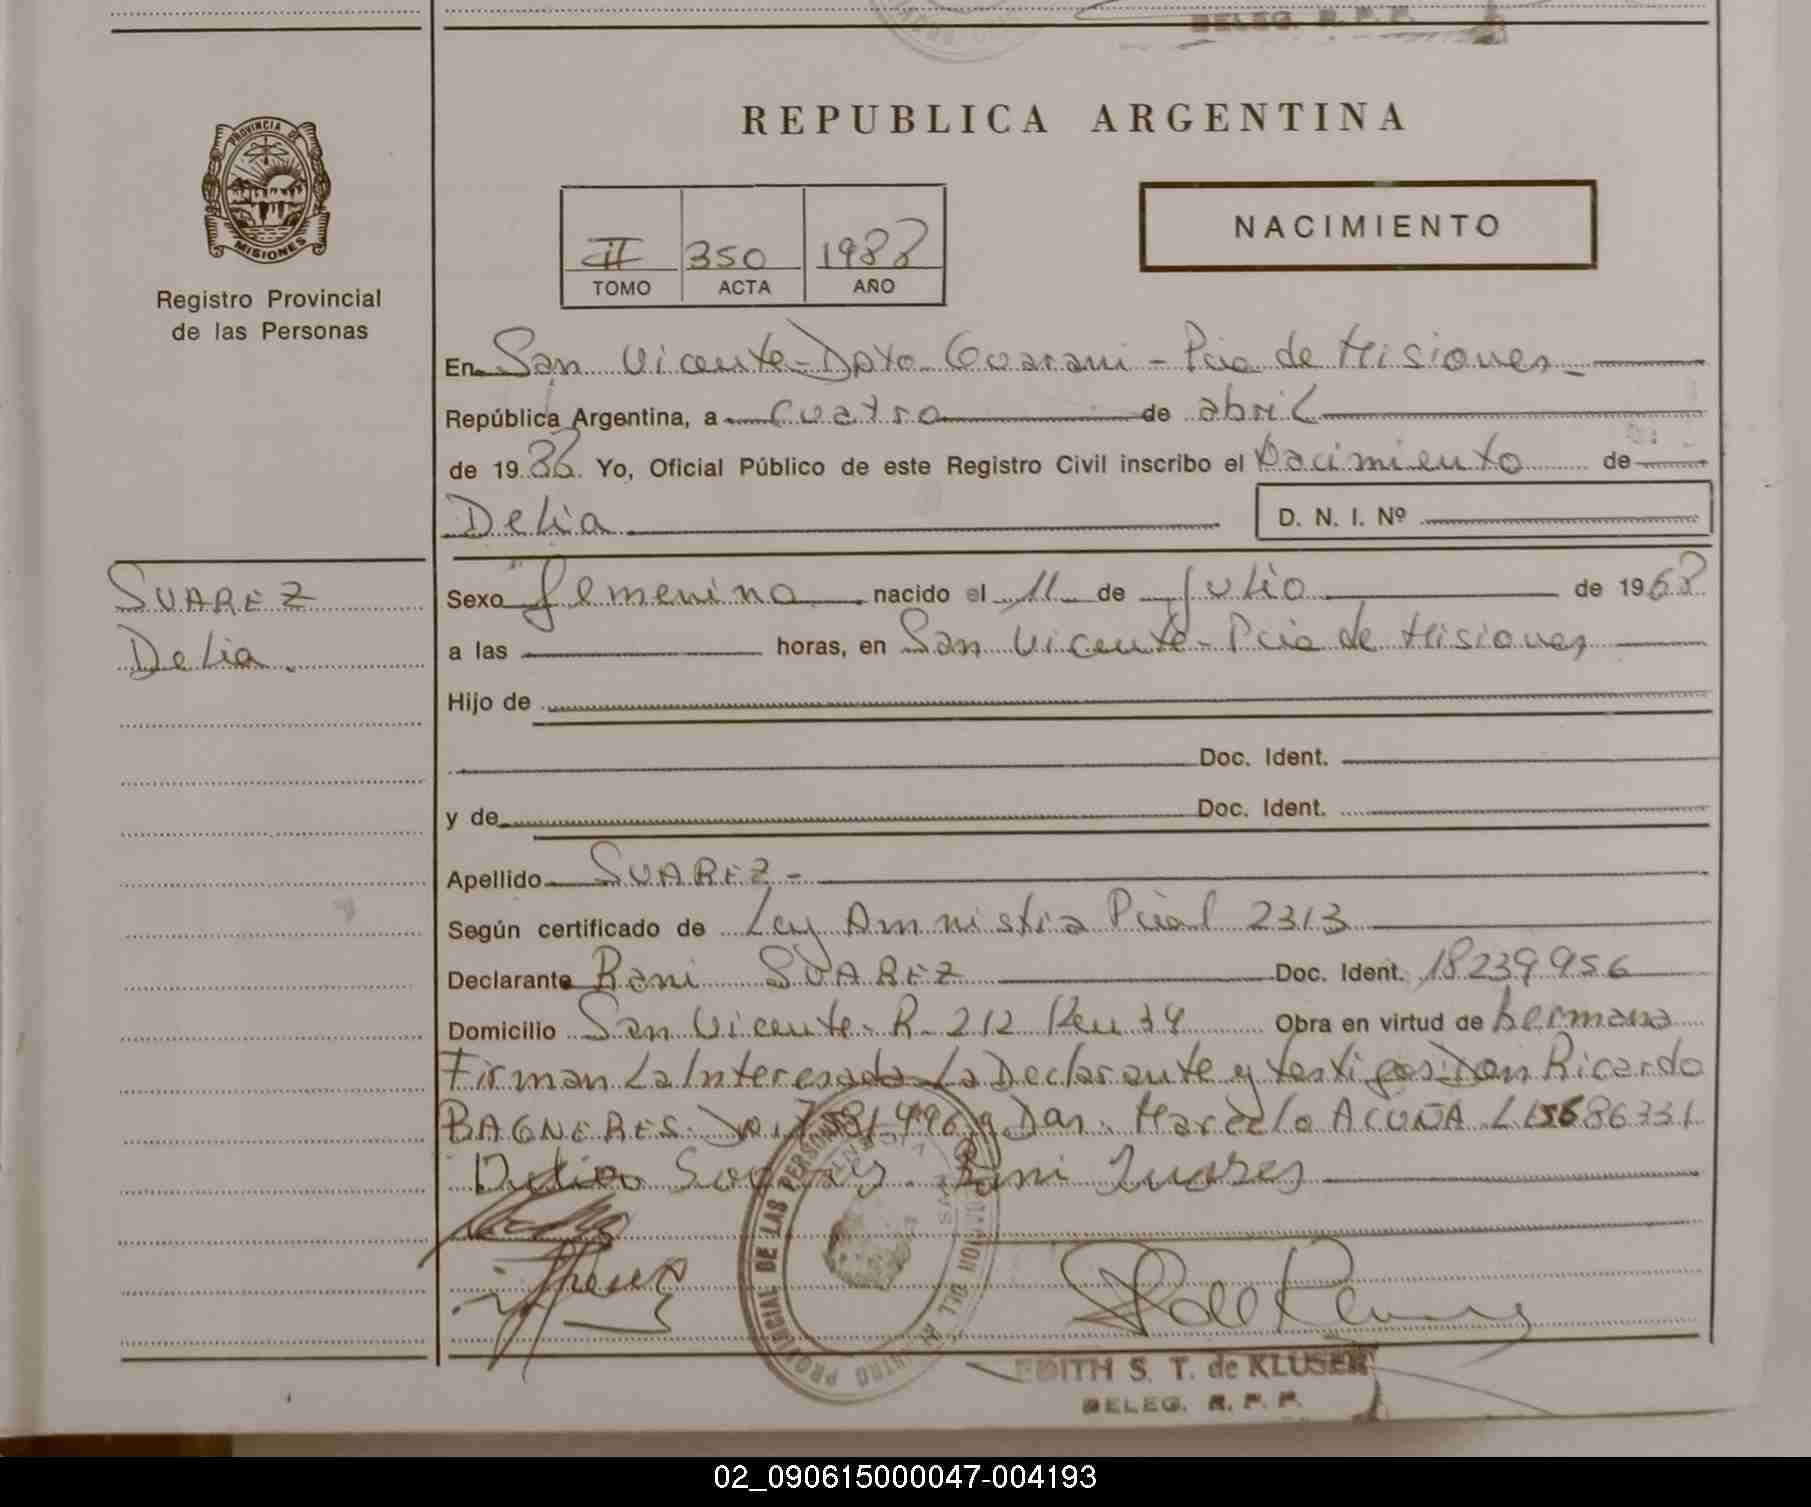 DELEG. R. P. P.
REPUBLICA ARGENTINA
PROVINCIA DE
MISIONES
Registro Provincial
de las Personas
NACIMIENTO
II 350 1988
TOMO ACTA AÑO
En San Vicente - Dpto Guarani - Pcia de Misiones
República Argentina, a cuatro de abril
de 1988 Yo, Oficial Público de este Registro Civil inscribo el Nacimiento de
Delia D. N. I. Nº
SUAREZ
Delia.
Sexo femenino nacido el 11 de Julio de 1968
a las horas, en San Vicente - Pcia de Misiones
Hijo de
Doc. Ident.
y de Doc. Ident.
Apellido SUAREZ -
Según certificado de Ley Amnistia Pcial 2313
Declarante Rani SUAREZ Doc. Ident. 18239956
Domicilio San Vicente - R. 212 Km 34 Obra en virtud de hermana
Firman La Interesada La Declarante y testigos Don Ricardo
BAGNERES y Don Marcelo ACUÑA
Rani Suares
EDITH S. T. de KLUSER
DELEG. R. P. P.
02_090615000047-004193